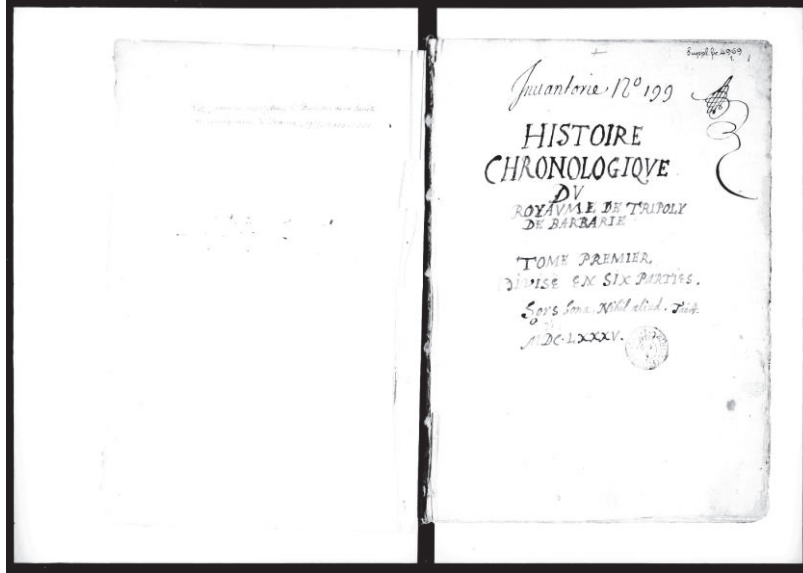 Suppl. fr. 4969
Inuantorie N° 199
HISTOIRE
CHRONOLOGIQVE
DV
ROYAVME DE TRIPOLY
DE BARBARIE
TOME PREMIER
DIVISÉ EN SIX PARTIES.
Sors bona. Nihil aliud.
MDC.LXXXV.